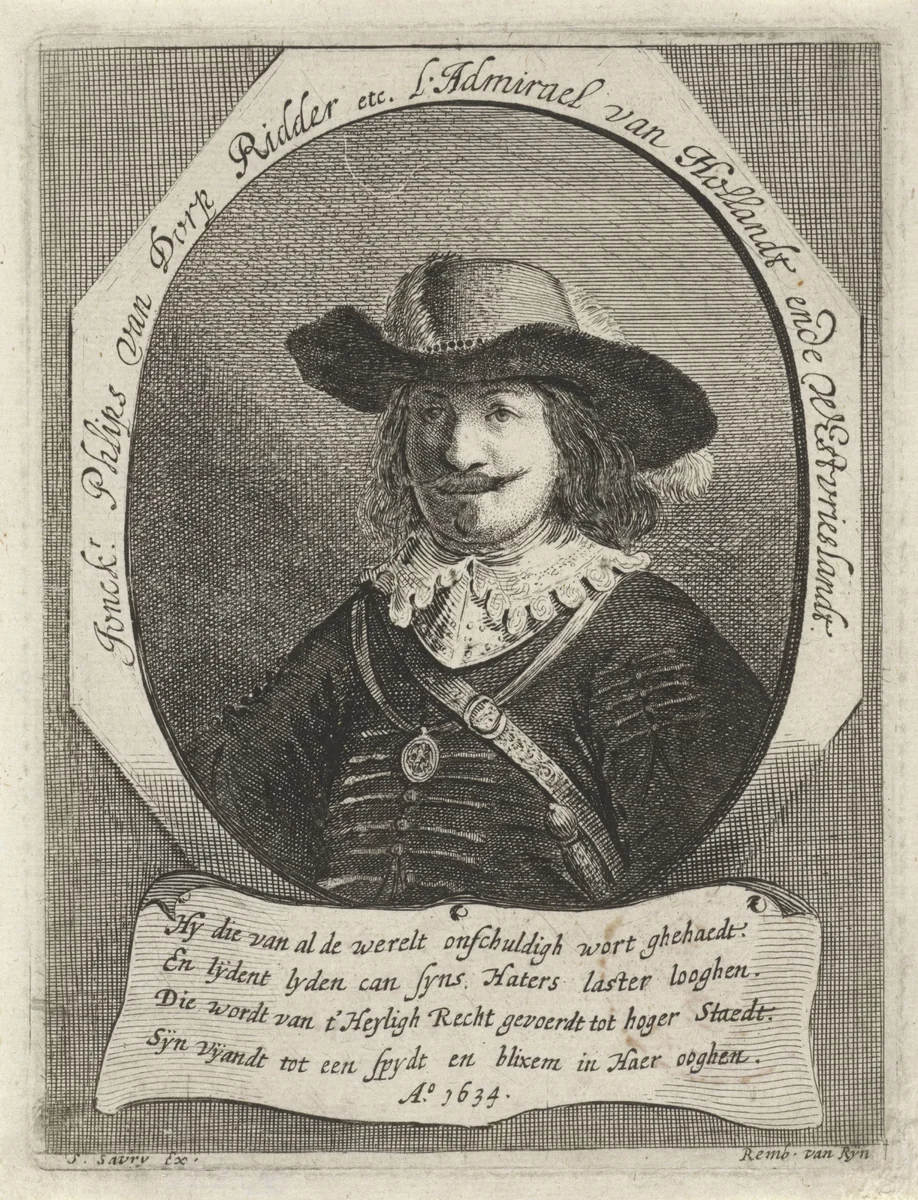 Jonckr. Phlips van Dorp Ridder etc. l. Admirael van Hollandt ende WEstvrieslandt.
Hy die van al de werelt onſchuldigh wort ghehaedt.
En lÿdent lyden can ſyns. Haters laster looghen.
Die wordt van t'Heyligh Recht gevoerdt tot hoger Staedt.
Sÿn Vÿandt tot een ſpydt en blixem in Haer ooghen.
A.º 1634.
S. Savry Ex.
Remb. van Rÿn